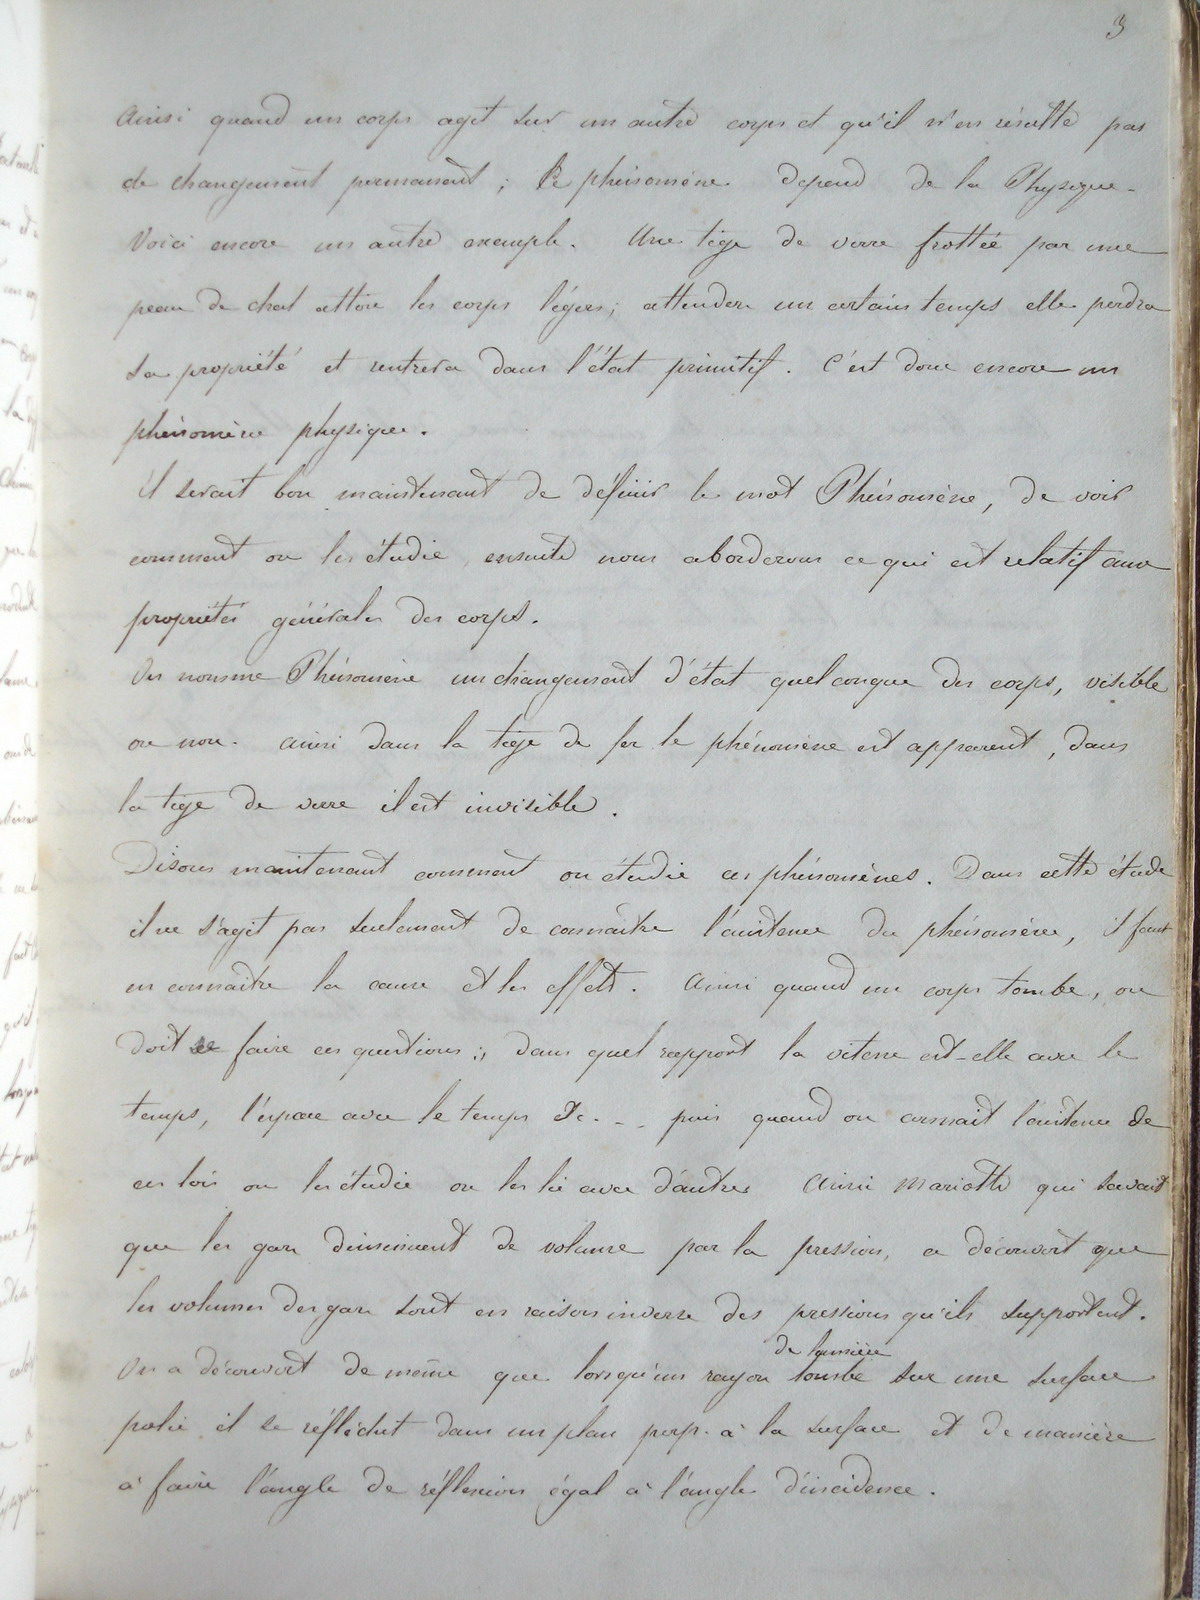 3
Ainsi quand un corps agit sur un autre corps et qu'il n'en résulte pas
de changement permanent ; le phénomène dépend de la Physique.
Voici encore un autre exemple. Une tige de verre frottée par une
peau de chat attire les corps légers ; attendez un certain temps elle perdra
sa propriété et rentrera dans l'état primitif. C'est donc encore un
phénomène physique.
Il serait bon maintenant de définir le mot Phénomène, de voir
comment on les étudie, ensuite nous aborderons ce qui est relatif aux
propriétés générales des corps.
On nomme Phénomène un changement d'état quelconque des corps, visible
ou non. Ainsi dans la tige de fer le phénomène est apparent, dans
la tige de verre il est invisible.
Disons maintenant comment on étudie ces phénomènes. Dans cette étude
il ne s'agit pas seulement de connaître l'existence du phénomène, il faut
en connaître la cause et les effets. Ainsi quand un corps tombe, on
doit se faire ces questions ; dans quel rapport la vitesse est-elle avec le
temps, l'espace avec le temps &c... puis quand on connait l'existence de
ces lois on les étudie on les lie avec d'autres Ainsi Mariotte qui savait
que les gaz diminuent de volume par la pression, a découvert que
les volumes des gaz sont en raison inverse des pressions qu'ils supportent.
On a découvert de même que lorsqu'un rayon de lumière tombe sur une surface
polie il se réfléchit dans un plan perp. à la surface et de manière
à faire l'angle de réflexion égal à l'angle d'incidence.